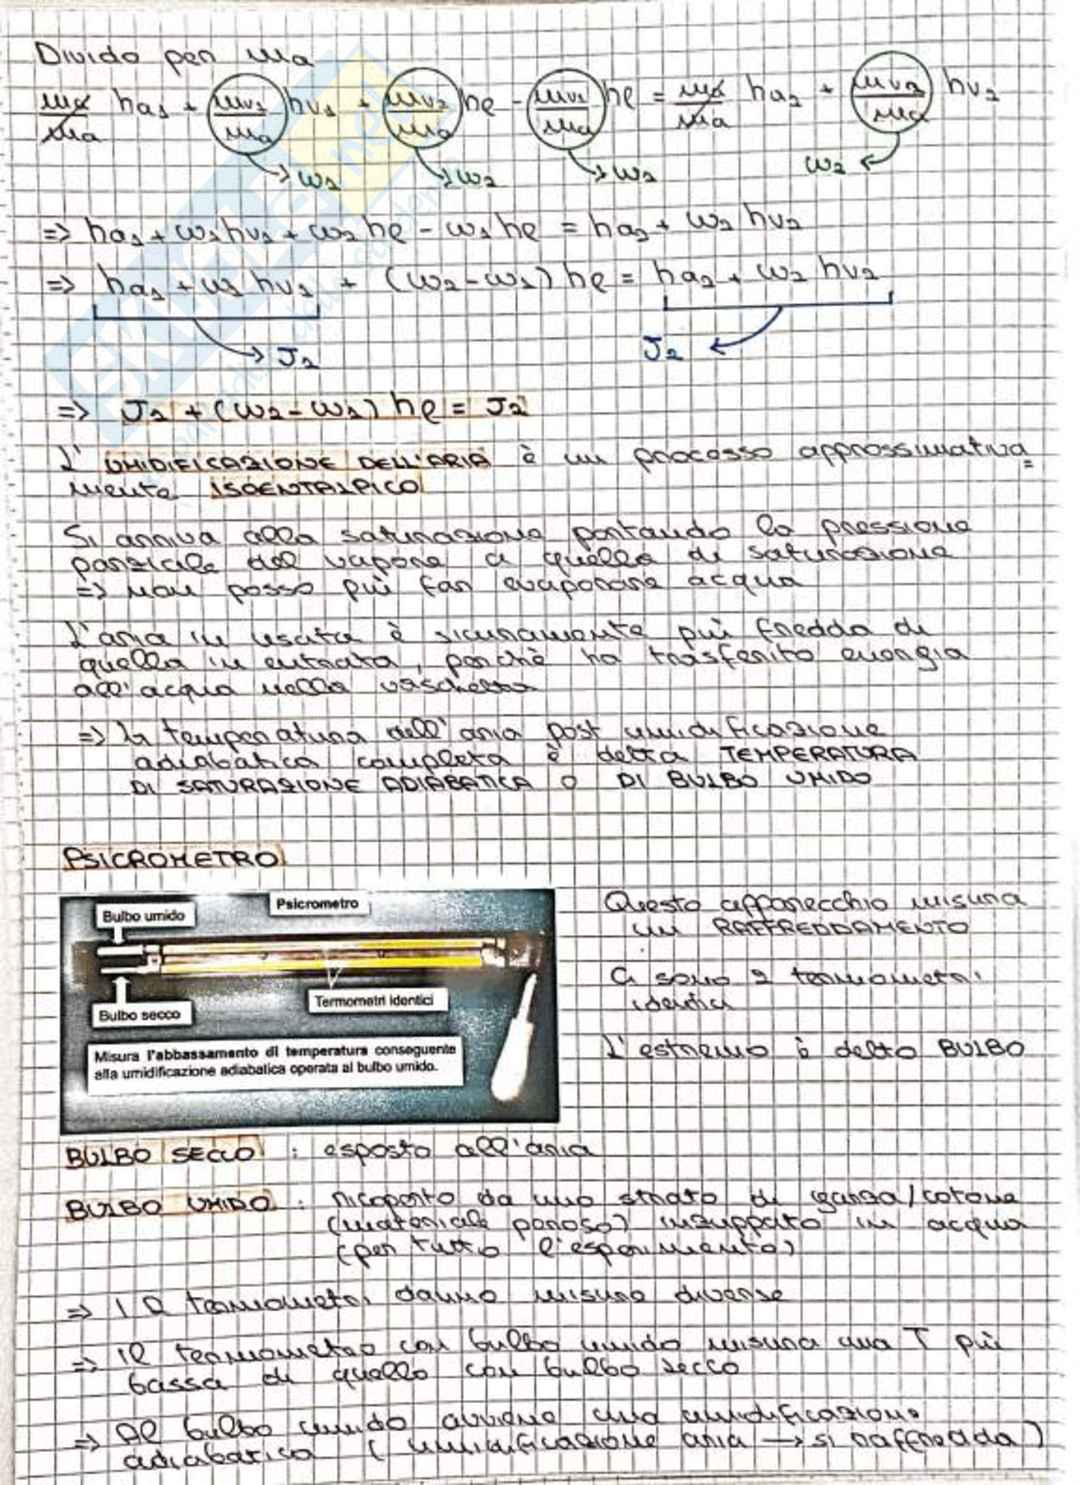 Divido per ma
ma/ma ha1 + mv1/ma hv1 + mv2/ma hl - mv1/ma hl = ma/ma ha2 + mv2/ma hv2
→ω1 →ω2 →ω1 ω2←
=> ha1 + ω1hv1 + ω2 hl - ω1 hl = ha2 + ω2 hv2
=> ha1 + ω1 hv1 + (ω2-ω1) hl = ha2 + ω2 hv2
→ J1 J2 ←
=> J1 + (ω2-ω1) hl = J2
L' UMIDIFICAZIONE DELL'ARIA è un processo approssimativa=
mente ISOENTALPICO
Si arriva alla saturazione portando la pressione
parziale del vapore a quella di saturazione
=> non posso più far evaporare acqua
L'aria in uscita è sicuramente più fredda di
quella in entrata, perchè ha trasferito energia
all'acqua nella vaschetta
=> la temperatura dell'aria post umidificazione
adiabatica completa è detta TEMPERATURA
DI SATURAZIONE ADIABATICA O DI BULBO UMIDO
PSICROMETRO
Bulbo umido
Psicrometro
Termometri identici
Bulbo secco
Misura l'abbassamento di temperatura conseguente
alla umidificazione adiabatica operata al bulbo umido.
Questo apparecchio misura
un RAFFREDDAMENTO
Ci sono 2 termometri
identici
L'estremo è detto BULBO
BULBO SECCO : esposto all'aria
BULBO UMIDO : ricoperto da uno strato di garza/cotone
(materiale poroso) inzuppato in acqua
(per tutto l'esperimento)
=> I 2 termometri danno misure diverse
=> Il termometro con bulbo umido misura una T più
bassa di quello con bulbo secco
=> Al bulbo umido avviene una umidificazione
adiabatica (umidificazione aria → si raffredda)